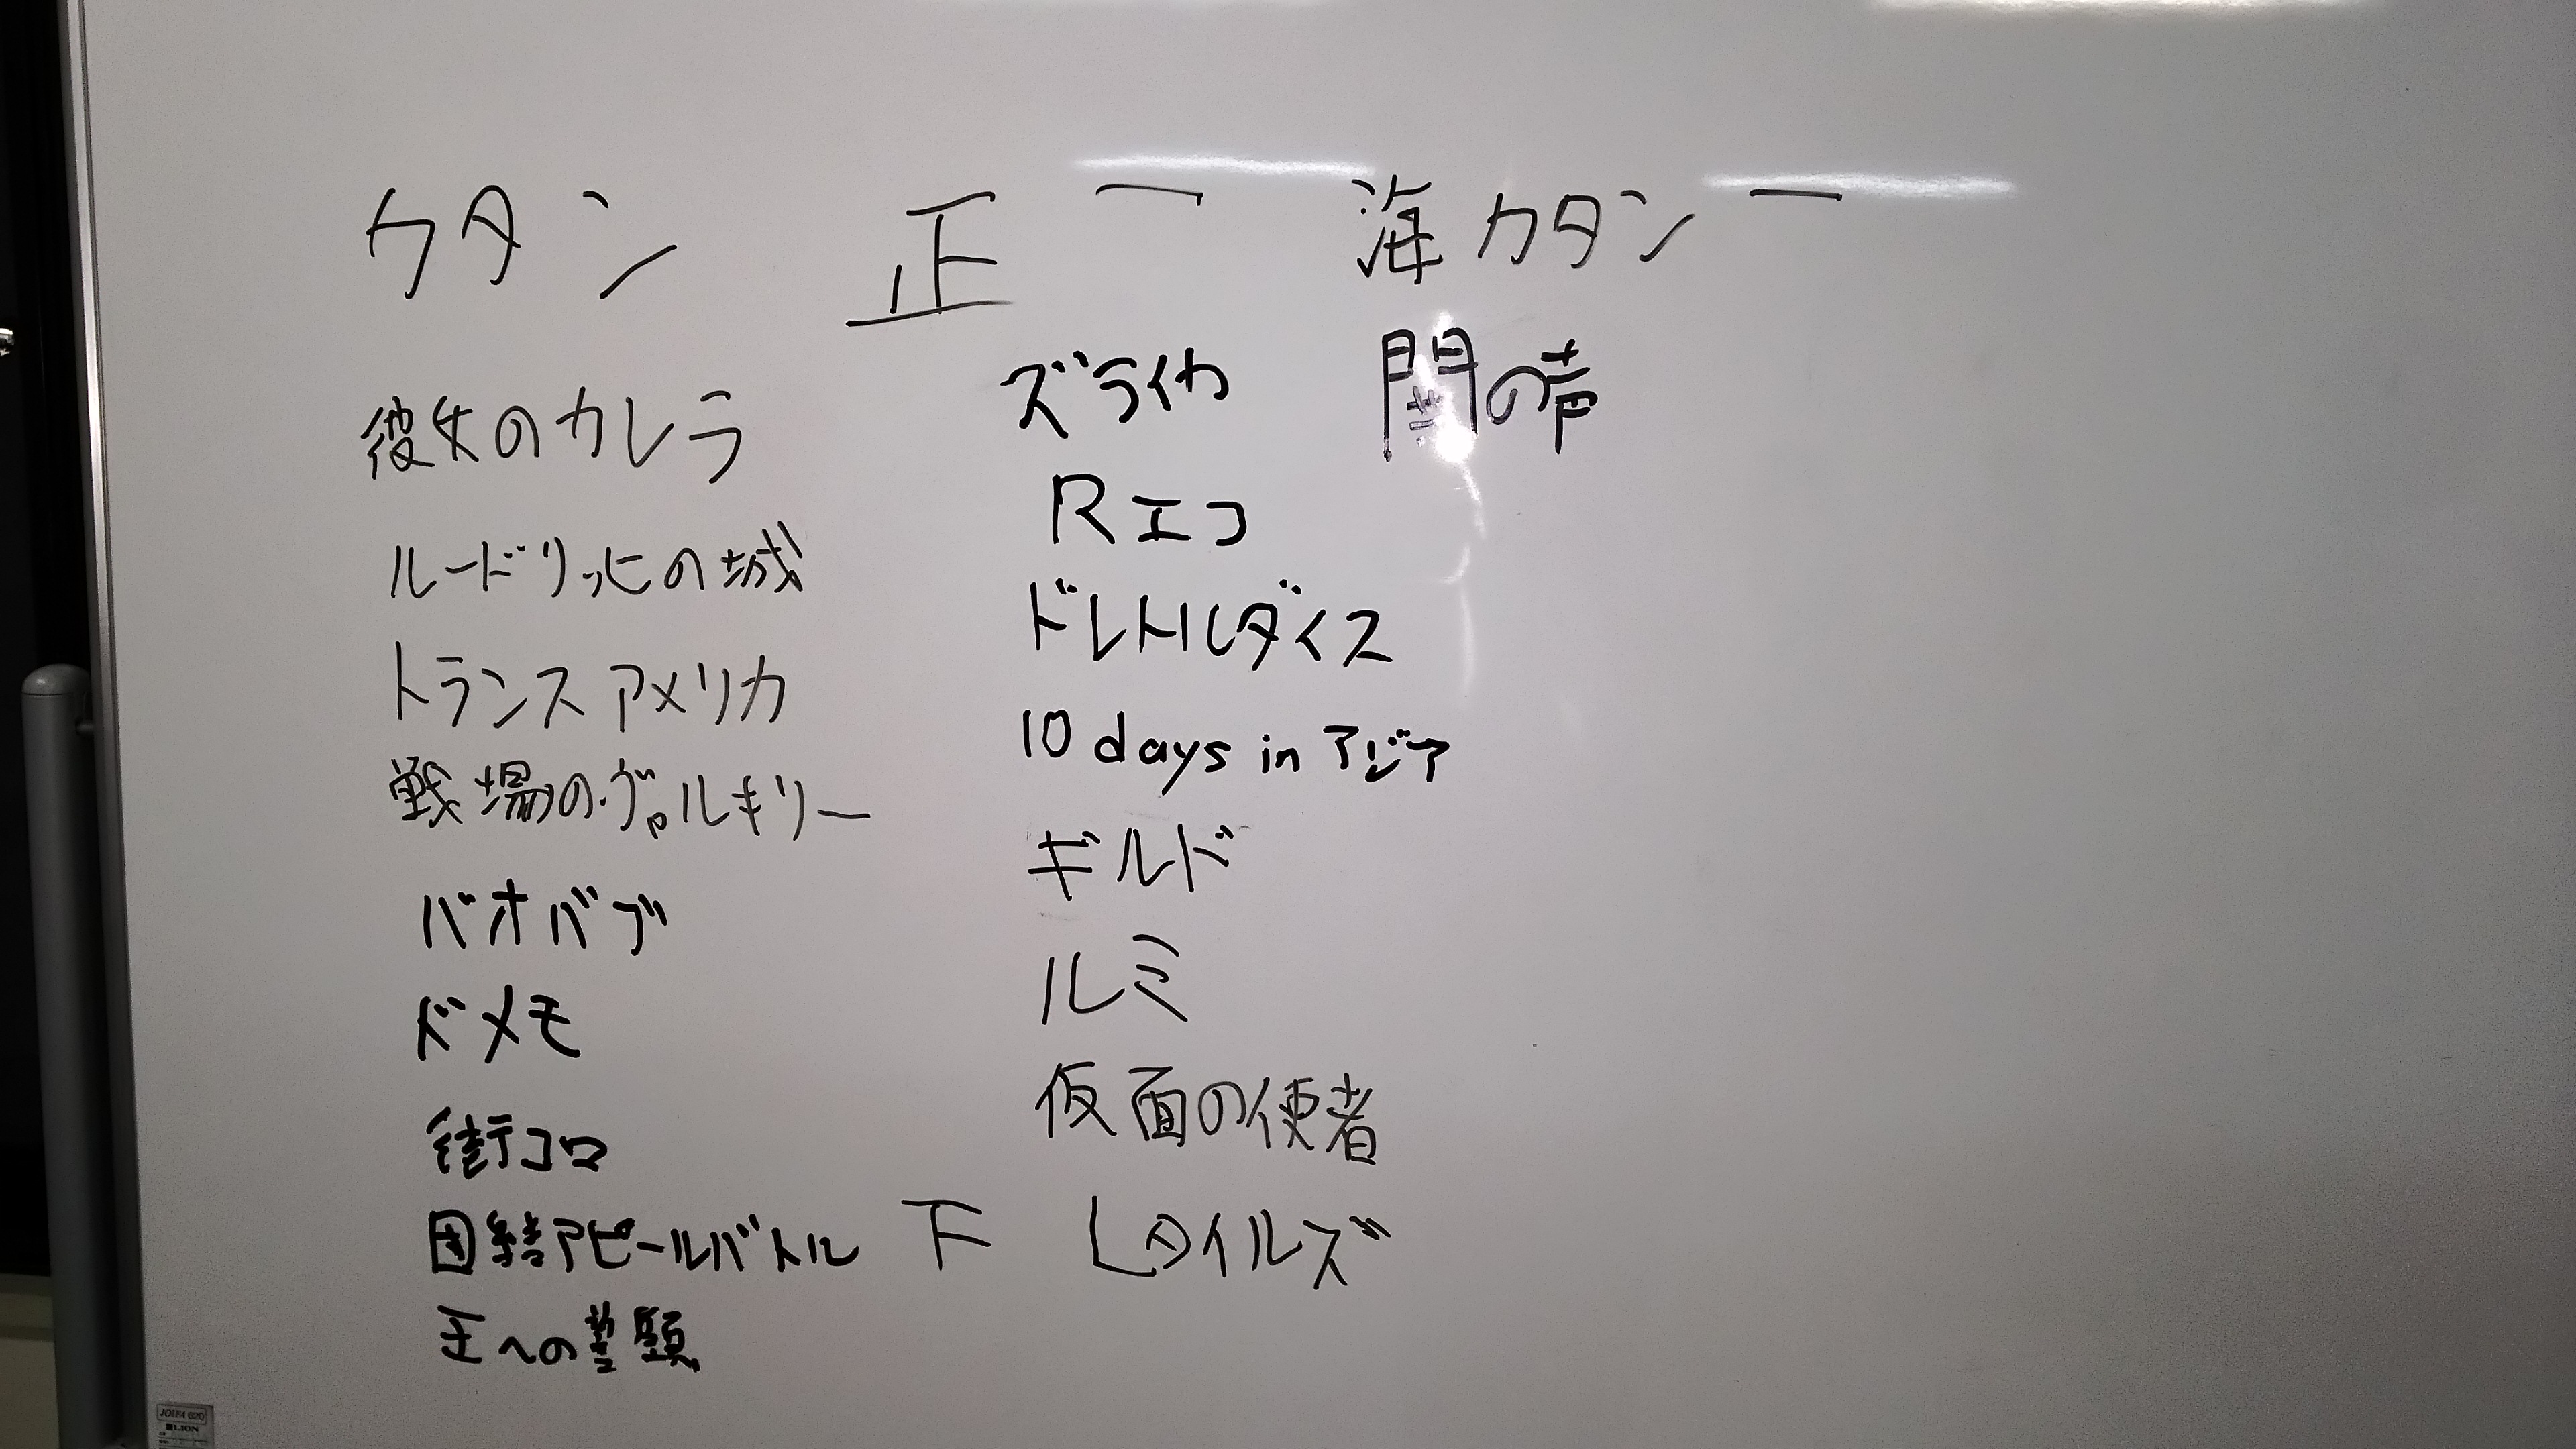 カタン 正一 海カタン 一
彼女のカレラ
ルードリッヒの城
トランスアメリカ
戦場のヴァルキリー
バオバブ
ドメモ
街コロ
団結アピールバトル 下
王への請願
ズライカ
Rエコ
ドレトルダイス
10 days in アジア
ギルド
ルミ
仮面の使者
Lタイルズ
闇の声
JOIFA 620
LION